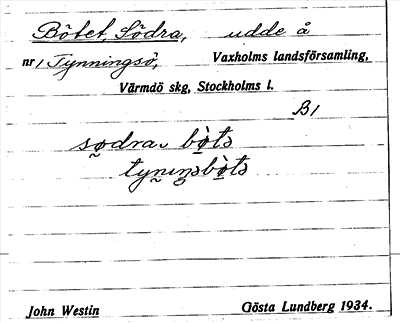 Bötet, Södra, udde å
nr 1 Tynningsö, Vaxholms landsförsamling,
Värmdö skg, Stockholms l.
B1
sø̰dra, bø̀tə
ty̰niŋsbø̀tə
John Westin Gösta Lundberg 1934.